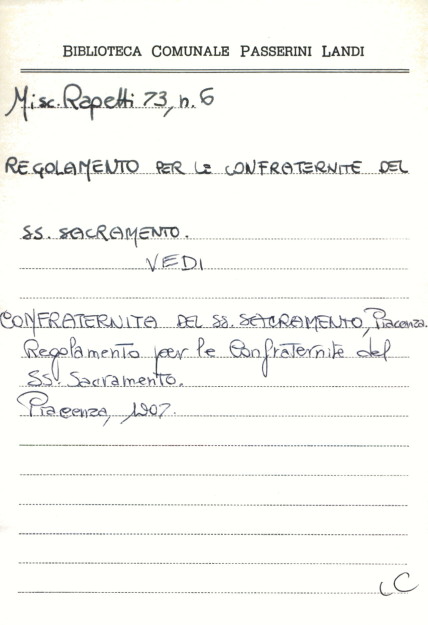 BIBLIOTECA COMUNALE PASSERINI LANDI
Misc. Rapetti 73, n. 6
REGOLAMENTO PER LE CONFRATERNITE DEL
SS. SACRAMENTO.
VEDI
CONFRATERNITA DEL SS. SACRAMENTO, Piacenza.
Regolamento per le Confraternite del
SS. Sacramento.
Piacenza, 1907.